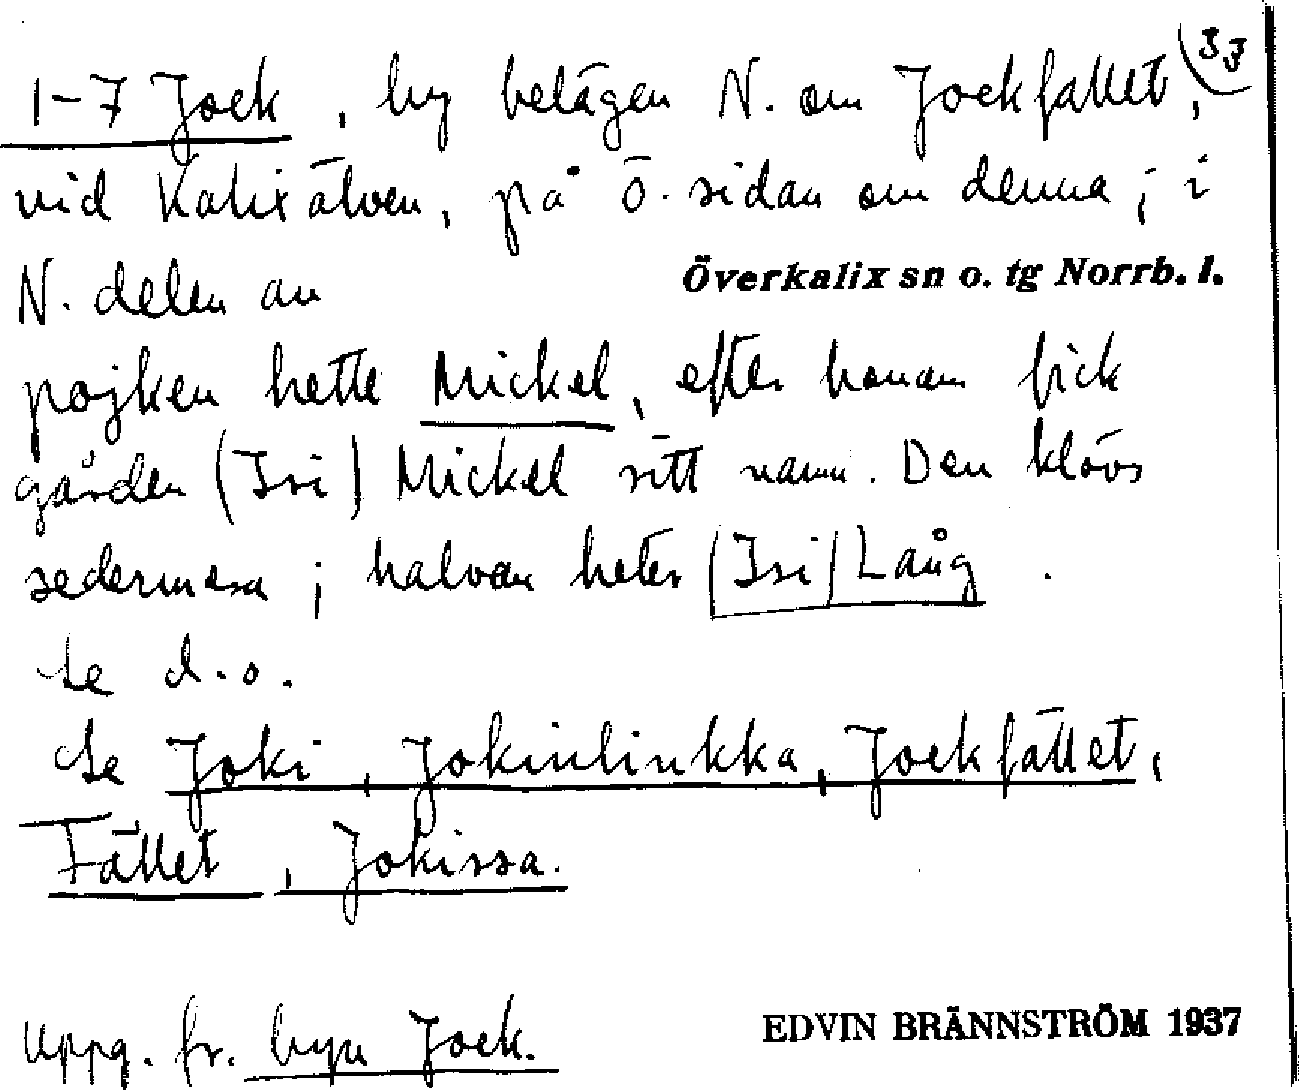 33
1-7 Jock, by belägen N. om Jockfallet,
vid Kalixälven, på Ö. sidan om denna; i
N. delen av Överkalix sn o. tg Norrb. l.
pojken hette Mickel, efter honom fick
gården (Isi) Mickel sitt namn. Den klövs
sedermera; halvan heter (Isi) Lång.
Se d.o.
Se Joki, Jokinlinkka, Jockfället,
Fället, Jokissa.
Uppg. fr. byn Jock. EDVIN BRÄNNSTRÖM 1937